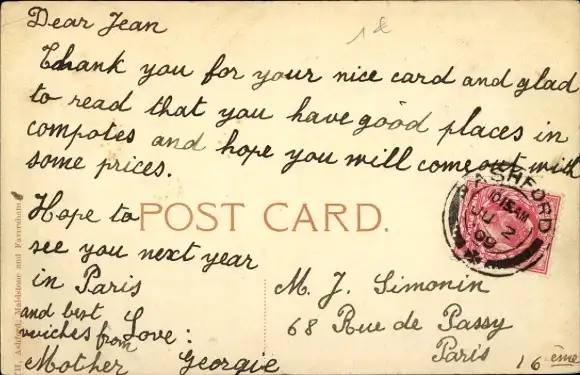 Dear Jean
1d
Thank you for your nice card and glad
to read that you have good places in
compotes and hope you will come out with
some prices.
Hope to
see you next year
in Paris
and best
wiches from
Mother
Love:
Georgie
POST CARD.
M. J. Simonin
68 Rue de Passy
Paris
16 ème
ASHFORD
10 15 AM
JU 2
09
Ashford, Maidstone and Faversham